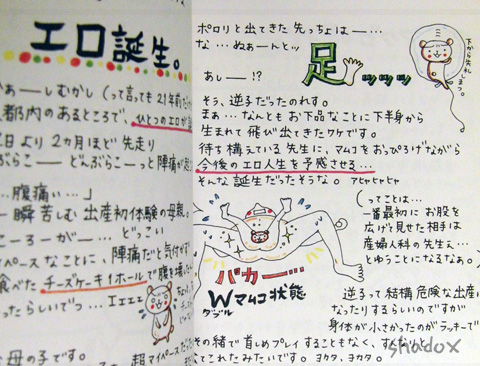 エロ誕生。
かぁーしむかし(って言っても21年前
都内のあるところで、ひとつのエロが
日より2カ月ほど先走り
ぶらこー どんぶらこーっと陣痛が
…腹痛い…」
一瞬苦しむ出産初体験の母親。
こーろーがー… どっこい
イペースなことに、陣痛だと気付かず
食べたチーズケーキ1ホールで腹を壊し
ったらしいでっ…
Iェェェェ
母の子です。
超マイペース
ポロリと出てきた先っちょはー…
な…ぬぁーんとッ
足ッッッ
あしー!?
下から失礼しまっす。
そう、逆子だったのれす。
まぁ…なんともお下品なことに下半身から
生まれて飛び出てきたワケです。
待ち構えている先生に、マムコをおっぴろげながら
今後のエロ人生を予感させる…
そんな誕生だったそうな。アヒャヒャヒャ
(ってことは…
一番最初にお股を
広げて見せた相手は
産婦人科の先生ぇ…
とゆうことになるなぁ。)
パカー…
Wマムコ状態
ダブル
逆子って結構危険な出産に
なったりするらしいのですが
身体が小さかったのがラッキーで
その緒で首しめプレイすることもなく、すんなりと
てこれたみたいです。ヨカタ、ヨカタ。
shadox